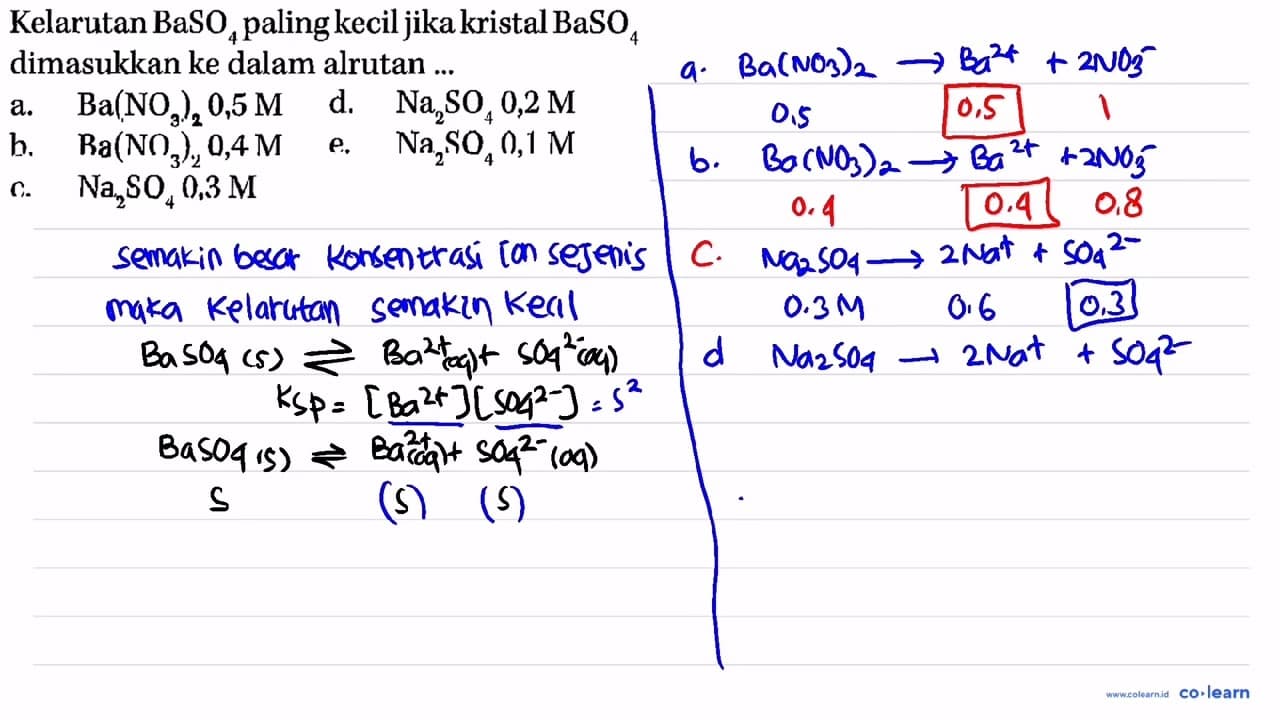 Kelarutan BaSO₄ paling kecil jika kristal BaSO₄
dimasukkan ke dalam alrutan ...
a. Ba(NO₃)₂ 0,5 M d. Na₂SO₄ 0,2 M
b. Ba(NO₃)₂ 0,4 M e. Na₂SO₄ 0,1 M
c. Na₂SO₄ 0,3 M
semakin besar konsentrasi Ion sejenis
maka kelarutan semakin kecil
BaSO₄ (s) ⇌ Ba²⁺(aq) + SO₄²⁻(aq)
Ksp = [Ba²⁺][SO₄²⁻] = s²
BaSO₄ (s) ⇌ Ba²⁺(aq) + SO₄²⁻ (aq)
s (s) (s)
a. Ba(NO₃)₂ → Ba²⁺ + 2NO₃⁻
0,5 0.5 1
b. Ba(NO₃)₂ → Ba²⁺ + 2NO₃⁻
0.4 0.4 0.8
C. Na₂SO₄ → 2Na⁺ + SO₄²⁻
0.3 M 0.6 0.3
d Na₂SO₄ → 2Na⁺ + SO₄²⁻
www.colearn.id co·learn